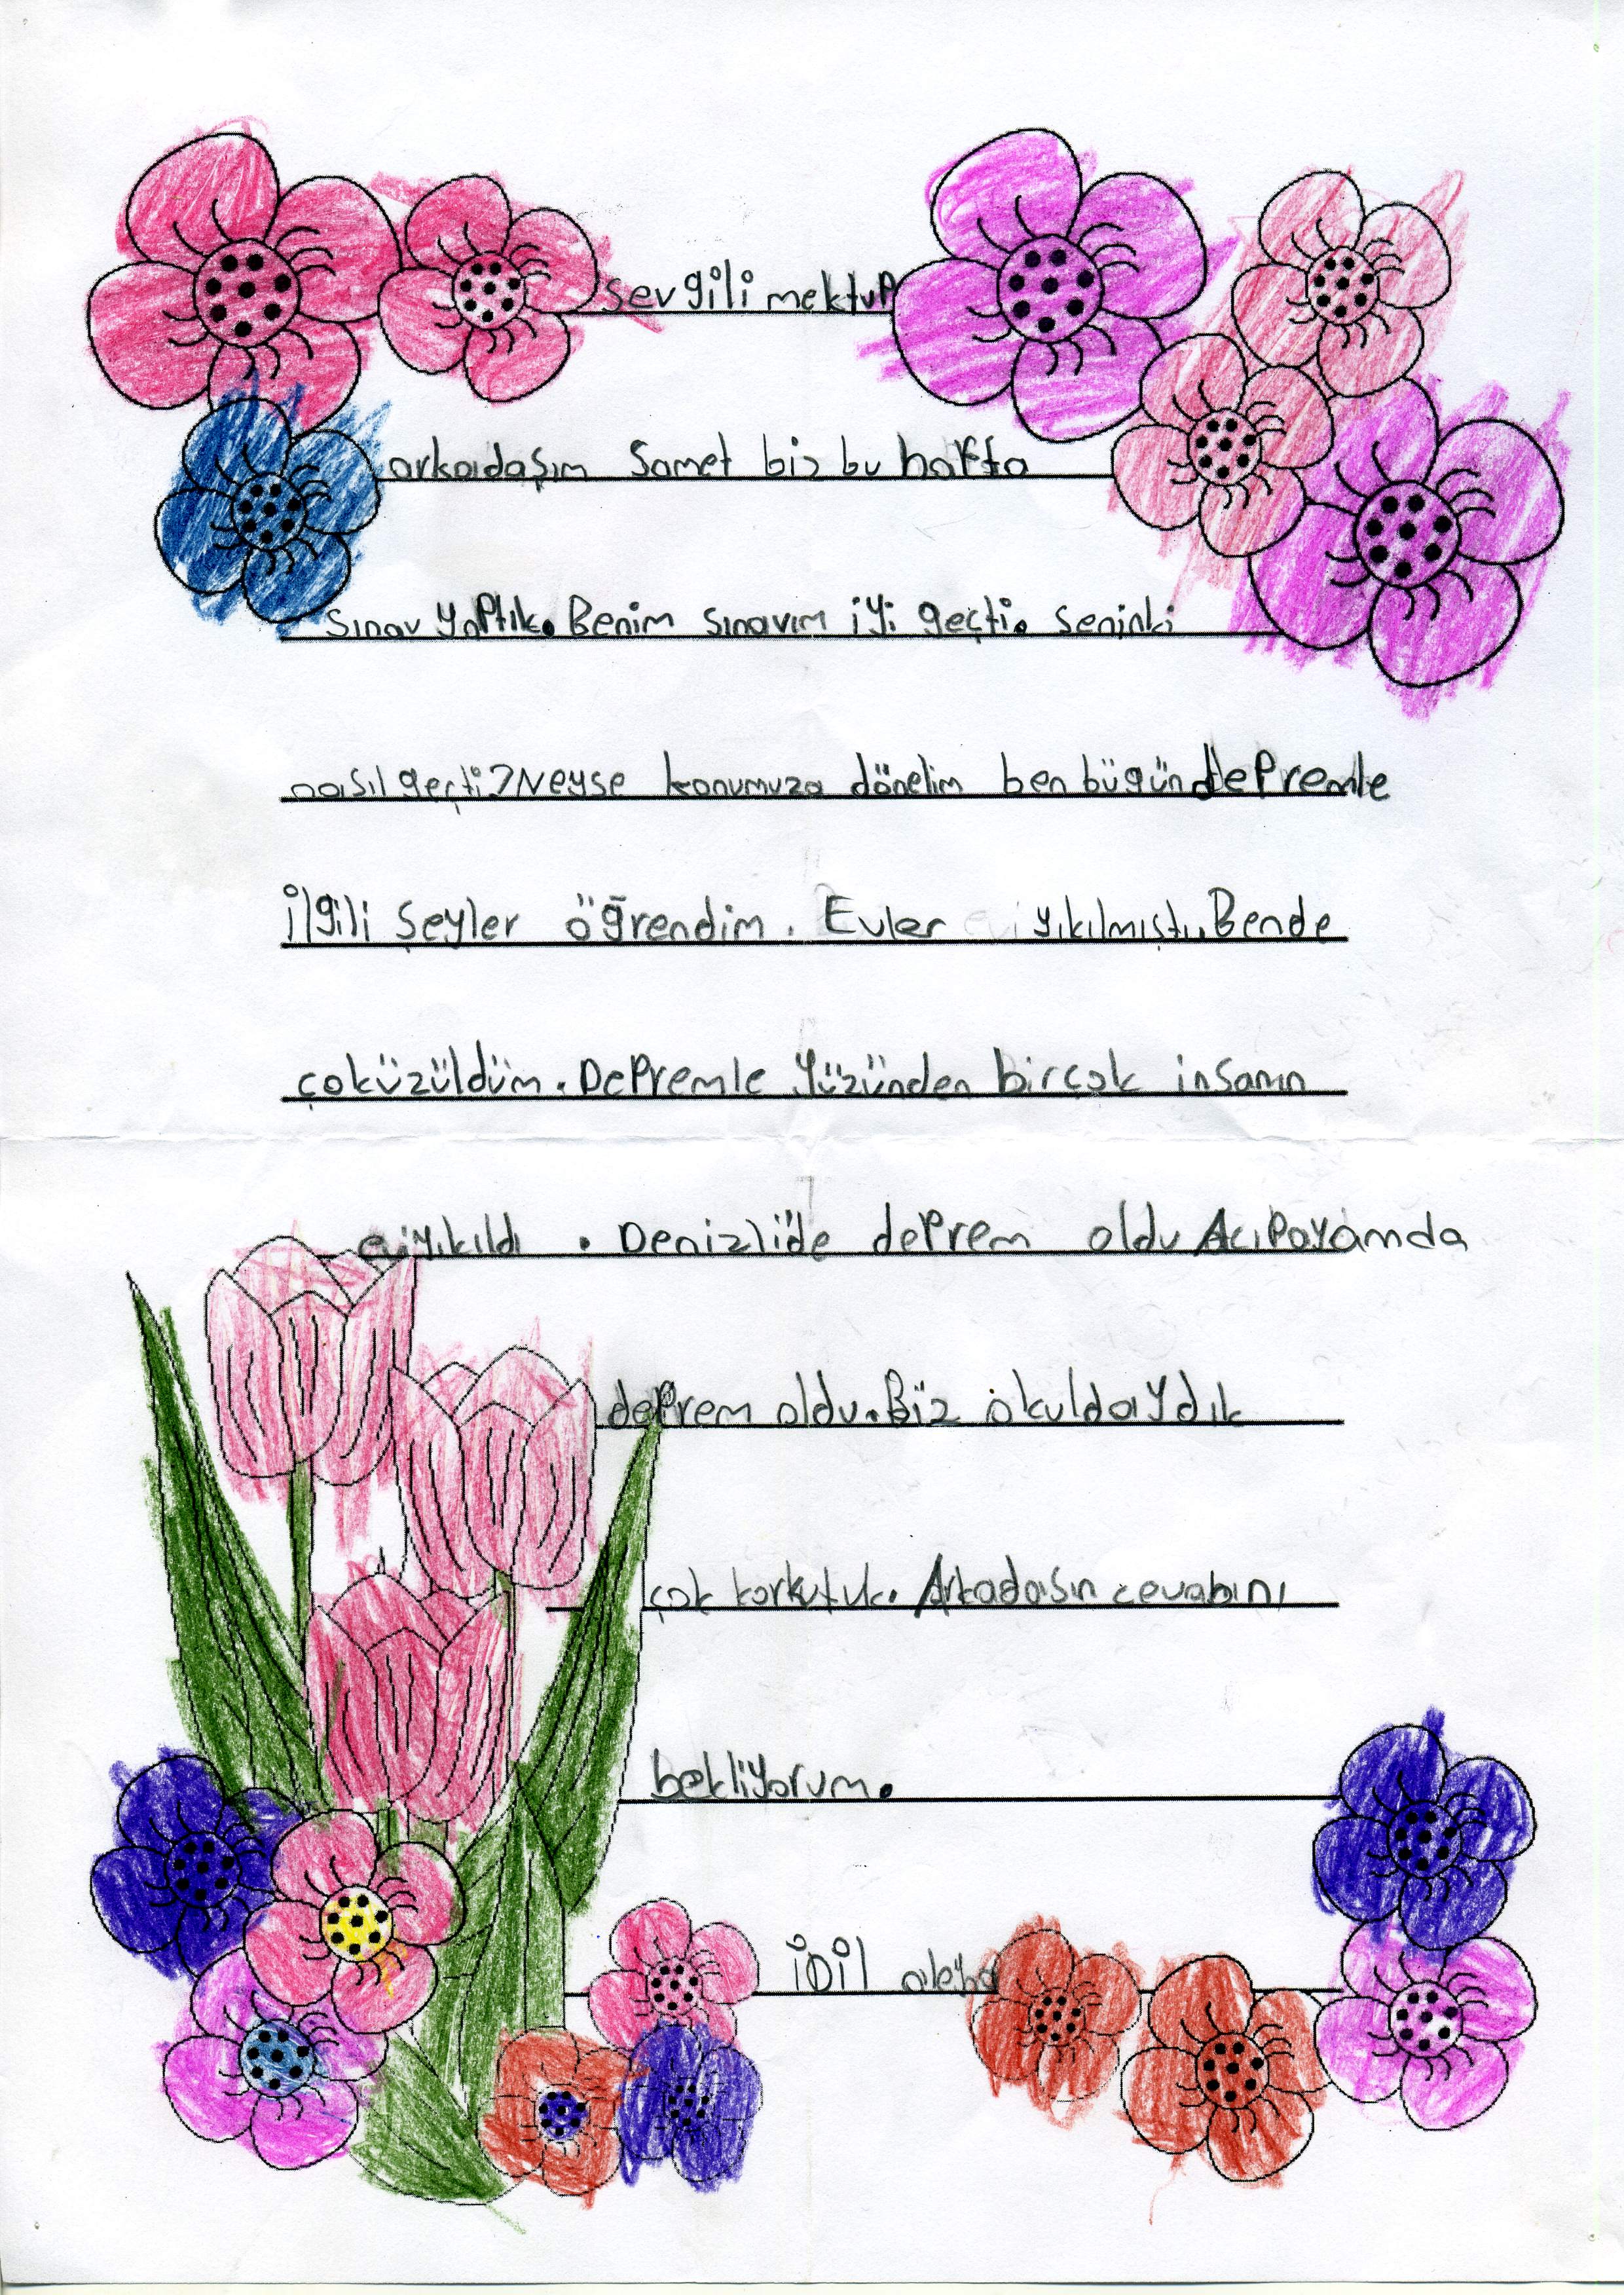 sevgili mektup
arkadaşım Samet biz bu hafta
Sınav yaptık. Benim sınavım iyi geçti. seninki
nasıl geçti? Neyse konumuza dönelim ben bügün depremle
ilgili Şeyler öğrendim. Evler yıkılmıştı. Bende
çoküzüldüm. Depremle yüzünden birçok insanın
eviyıkıldı . Denizli'de deprem oldu Acıpayamda
deprem oldu. Biz okuldaydık
çok korkutuk. Arkadaşın cevabını
bekliyorum.
iDil